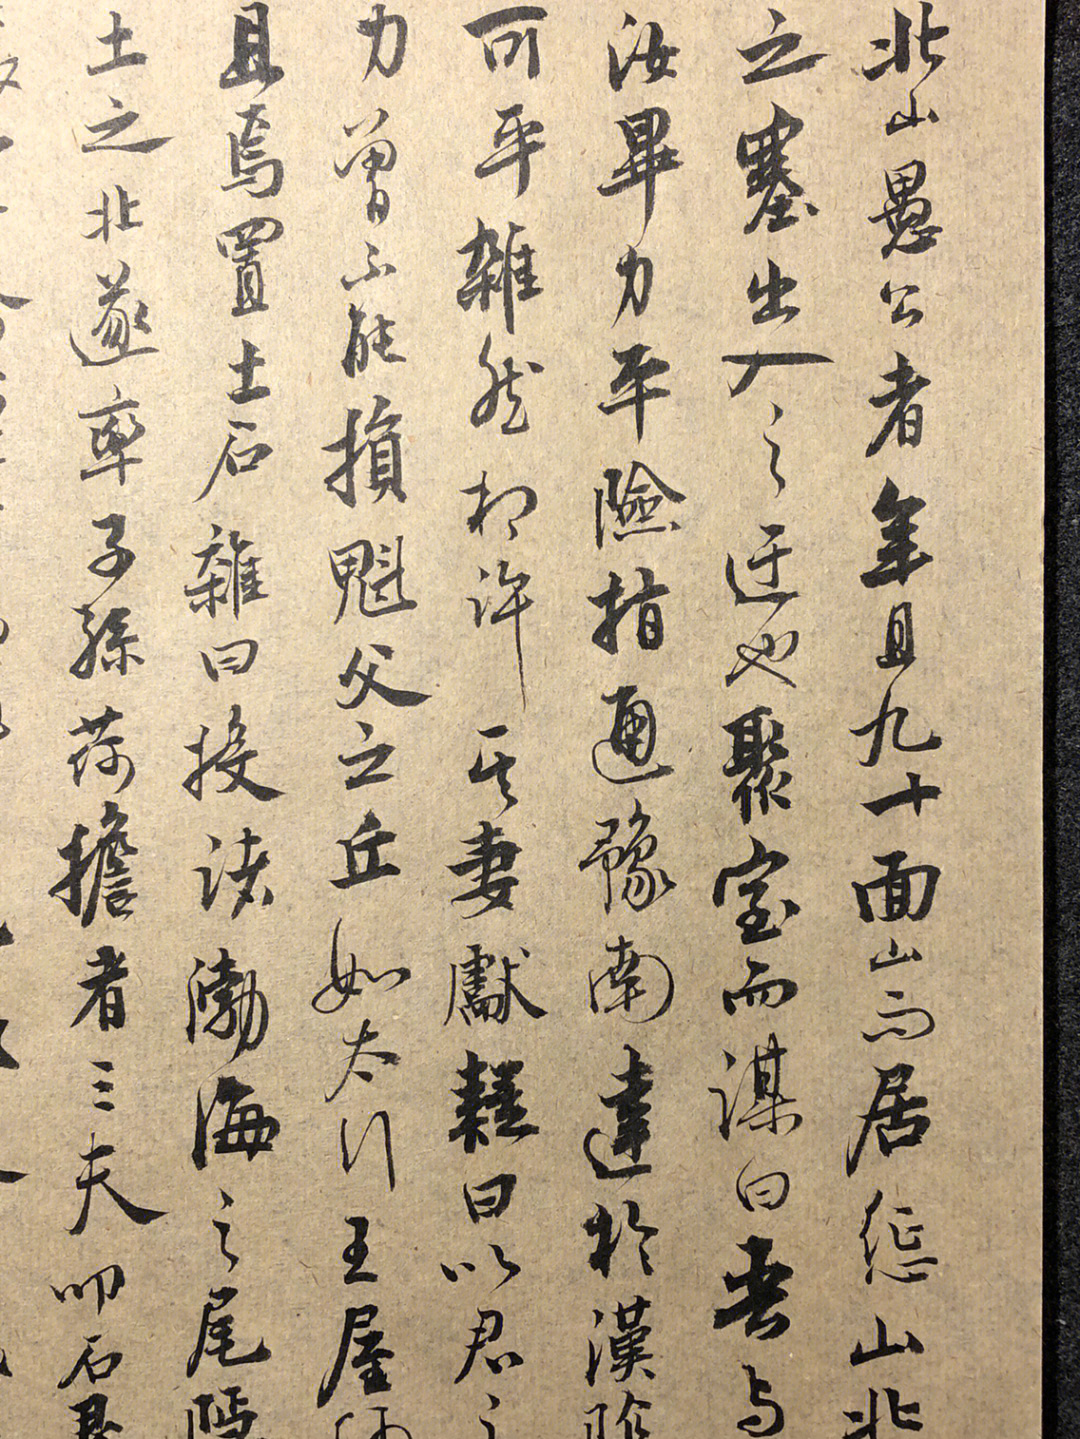 北山愚公者年且九十面山而居惩山北
之塞出入之迂也聚室而謀曰吾与
汝畢力平險指通豫南達於漢陰
可平雜然相許其妻獻疑曰以君之
力曾不能損魁父之丘如太行王屋何
且焉置土石雜曰投諸渤海之尾隱
土之北遂率子孫荷擔者三夫叩石墾